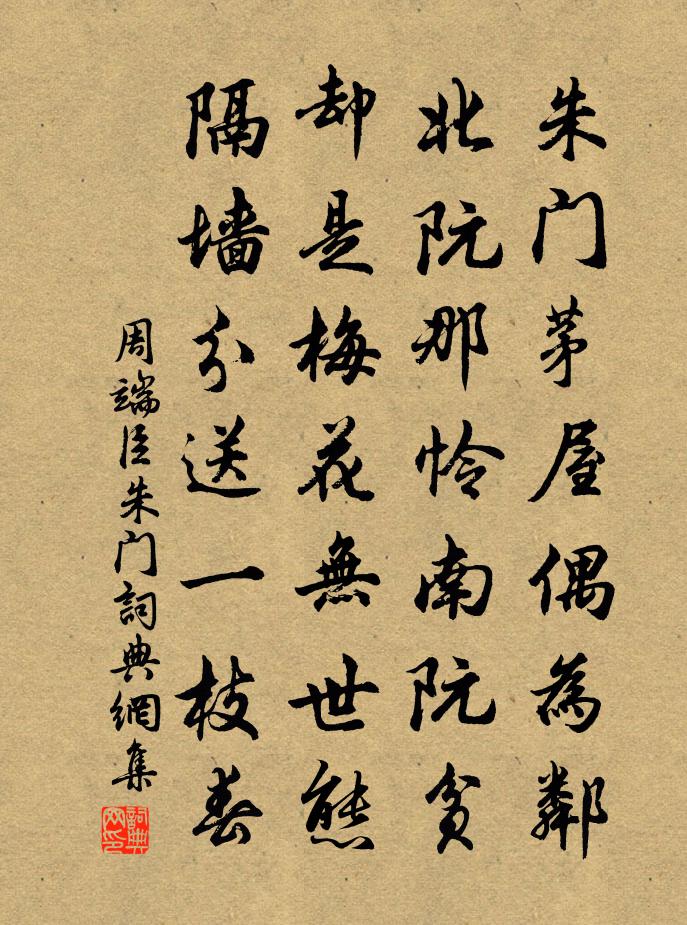 朱门茅屋偶為鄰
北阮那怜南阮贫
却是梅花無世態
隔墙分送一枝春
周端臣朱门詞典網集
詞典网印